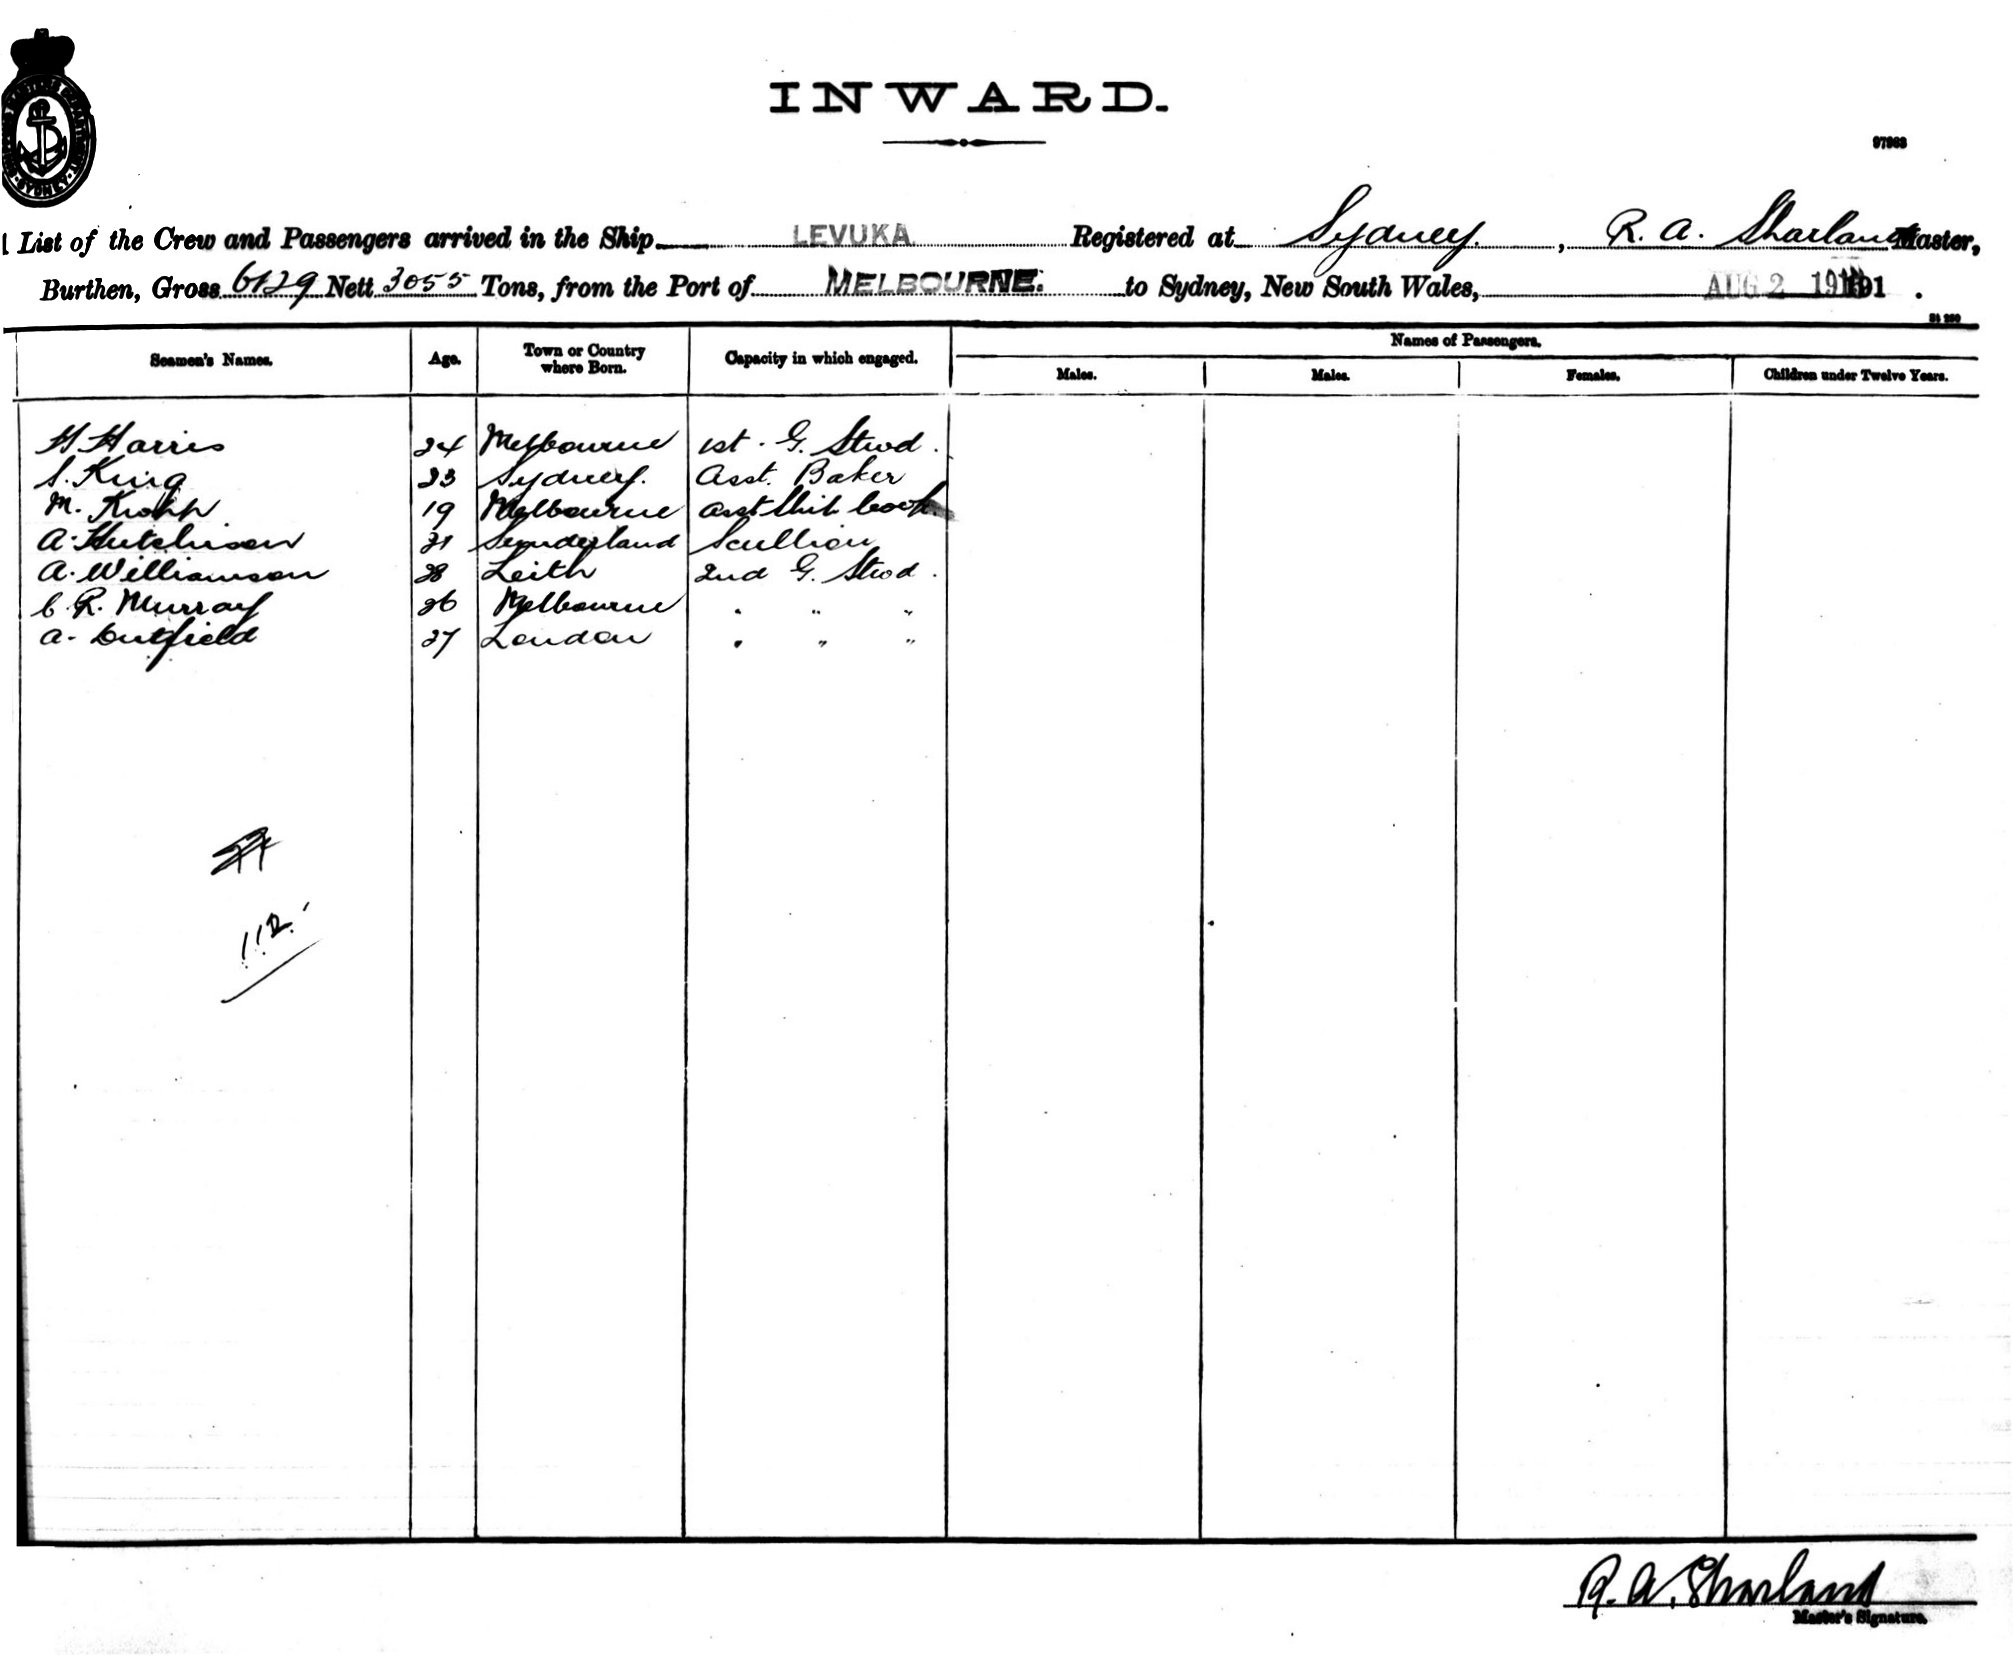 INWARD.
97963
List of the Crew and Passengers arrived in the Ship LEVUKA Registered at Sydney, R. A. Sharland Master,
Burthen, Gross 6129 Nett 3055 Tons, from the Port of MELBOURNE. to Sydney, New South Wales, AUG 2 191
Seamen's Names. Age. Town or Country where Born. Capacity in which engaged. Names of Passengers.
Males. Males. Females. Children under Twelve Years.
H. Harris 24 Melbourne 1st. G. Stwd.
S. King 23 Sydney. Asst. Baker
M. 19 Melbourne Asst Ship Cook
A. Hutchison 21 Sunderland Scullion
A. Williamson 28 Leith 2nd G. Stwd.
C. R. Murray 26 Melbourne " " "
A. Dutfield 27 London " " "
112
R. A. Sharland
Master's Signature.